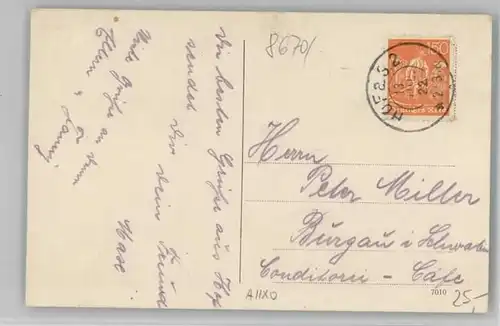 Die besten Grüße aus Hof
sendet Dir Dein Freund
Hase
Viele Grüße an Deine
Eltern u.
8670/
150
HOF 2
22
Herrn
Peter Miller
Burgau i. Schwaben
Conditorei - Café
7010
A11X0
25,-